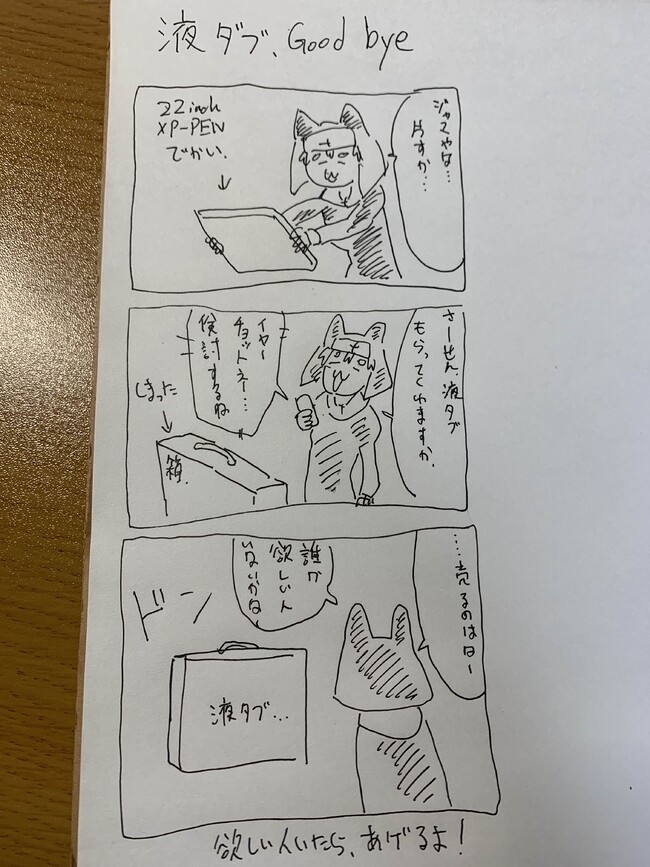 液タブ、Good bye
22inch
XP-PEN
でかい.
ジャマやな…
片すか…
さーせん、液タブ
もらってくれますか.
イヤー
チョットネー…
検討するね
しまった
箱.
……売るのはなー
誰か
欲しい人
いないかな.
ドン
液タブ…
欲しい人いたら、あげるよ！